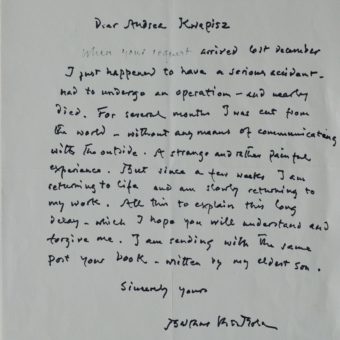 Dear Andrea
When your request arrived last December
I just happened to have a serious accident -
had to undergo an operation - and nearby
died. For several months I was cut from
the world - without any means of communicating
with the outside. A strange and rather painful
experience. But since a few weeks I am
returning to life and am slowly returning to
my work. All this to explain this long
delay - which I hope you will understand and
forgive me. I am sending with the same
post your book - written by my eldest son.
Sincerely yours